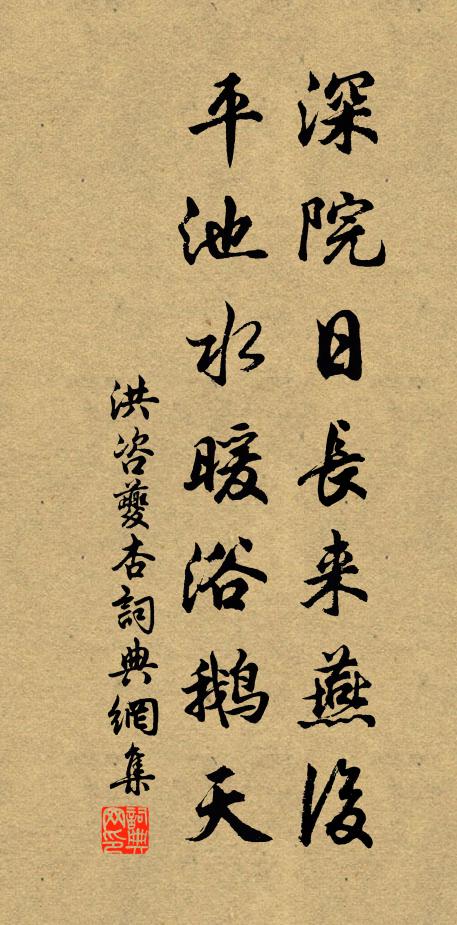 深院日長来燕後
平池水暖浴鵝天
洪咨夔杏詞典網集
詞典网印